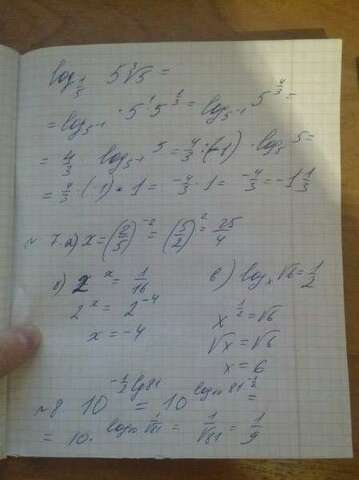 log_{1/5} 5∛5 =
= log_{5^{-1}} · 5^{1} 5^{1/3} = log_{5^{-1}} 5^{4/3} =
= 4/3 log_{5^{-1}} 5 = 4/3 · (-1) · log_{5} 5 =
= 4/3 (-1) · 1 = -4/3 · 1 = -4/3 = -1 1/3
№ 7. а) x = (2/5)^{-2} = (5/2)^{2} = 25/4
б) 2^{x} = 1/16
2^{x} = 2^{-4}
x = -4
в) log_{x} √6 = 1/2
x^{1/2} = √6
√x = √6
x = 6
№8 10^{-1/2 lg 81} = 10^{log_{10} 81^{-1/2}} =
= 10^{log_{10} 1/√81} = 1/√81 = 1/9